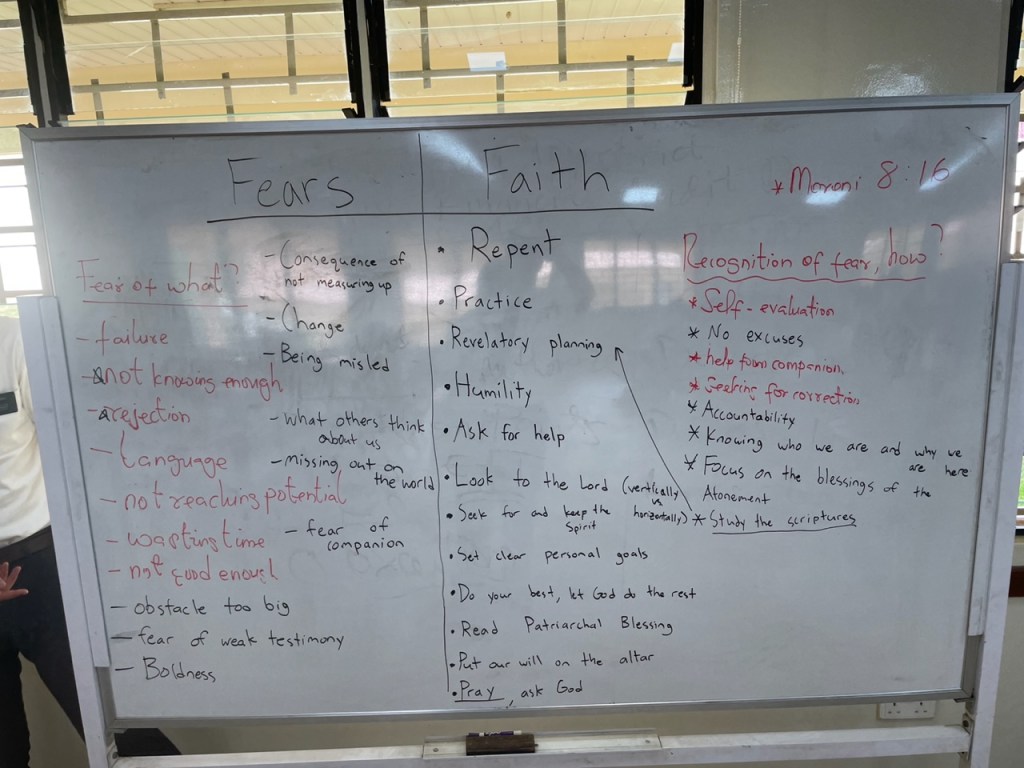 Fears
Fear of what?
- failure
- not knowing enough
- rejection
- Language
- not reaching potential
- wasting time
- not good enough
- obstacle too big
- fear of weak testimony
- Boldness
- Consequence of
not measuring up
- Change
- Being misled
- What others think
about us
- missing out on
the world
- fear of
companion
Faith
• Repent
• Practice
• Revelatory planning
• Humility
• Ask for help
• Look to the Lord (vertically
vs
horizontally)
• Seek for and keep the
Spirit
• Set clear personal goals
• Do your best, let God do the rest
• Read Patriarchal Blessing
• Put our will on the altar
• Pray, ask God
* Moroni 8:16
Recognition of fear, how?
* Self-evaluation
* No excuses
* help from companion.
* Seeking for correction
* Accountability
* Knowing who we are and why we
are here
* Focus on the blessings of the
Atonement
* Study the scriptures